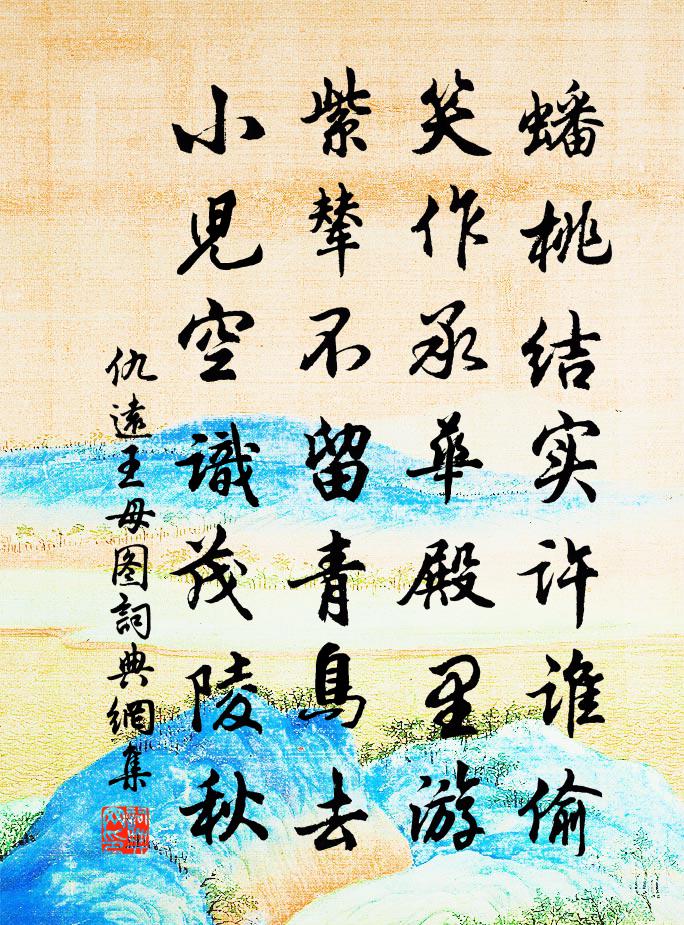 蟠桃结实许谁偷
笑作承华殿里游
紫辇不留青鸟去
小儿空識茂陵秋
仇遠王母图詞典網集